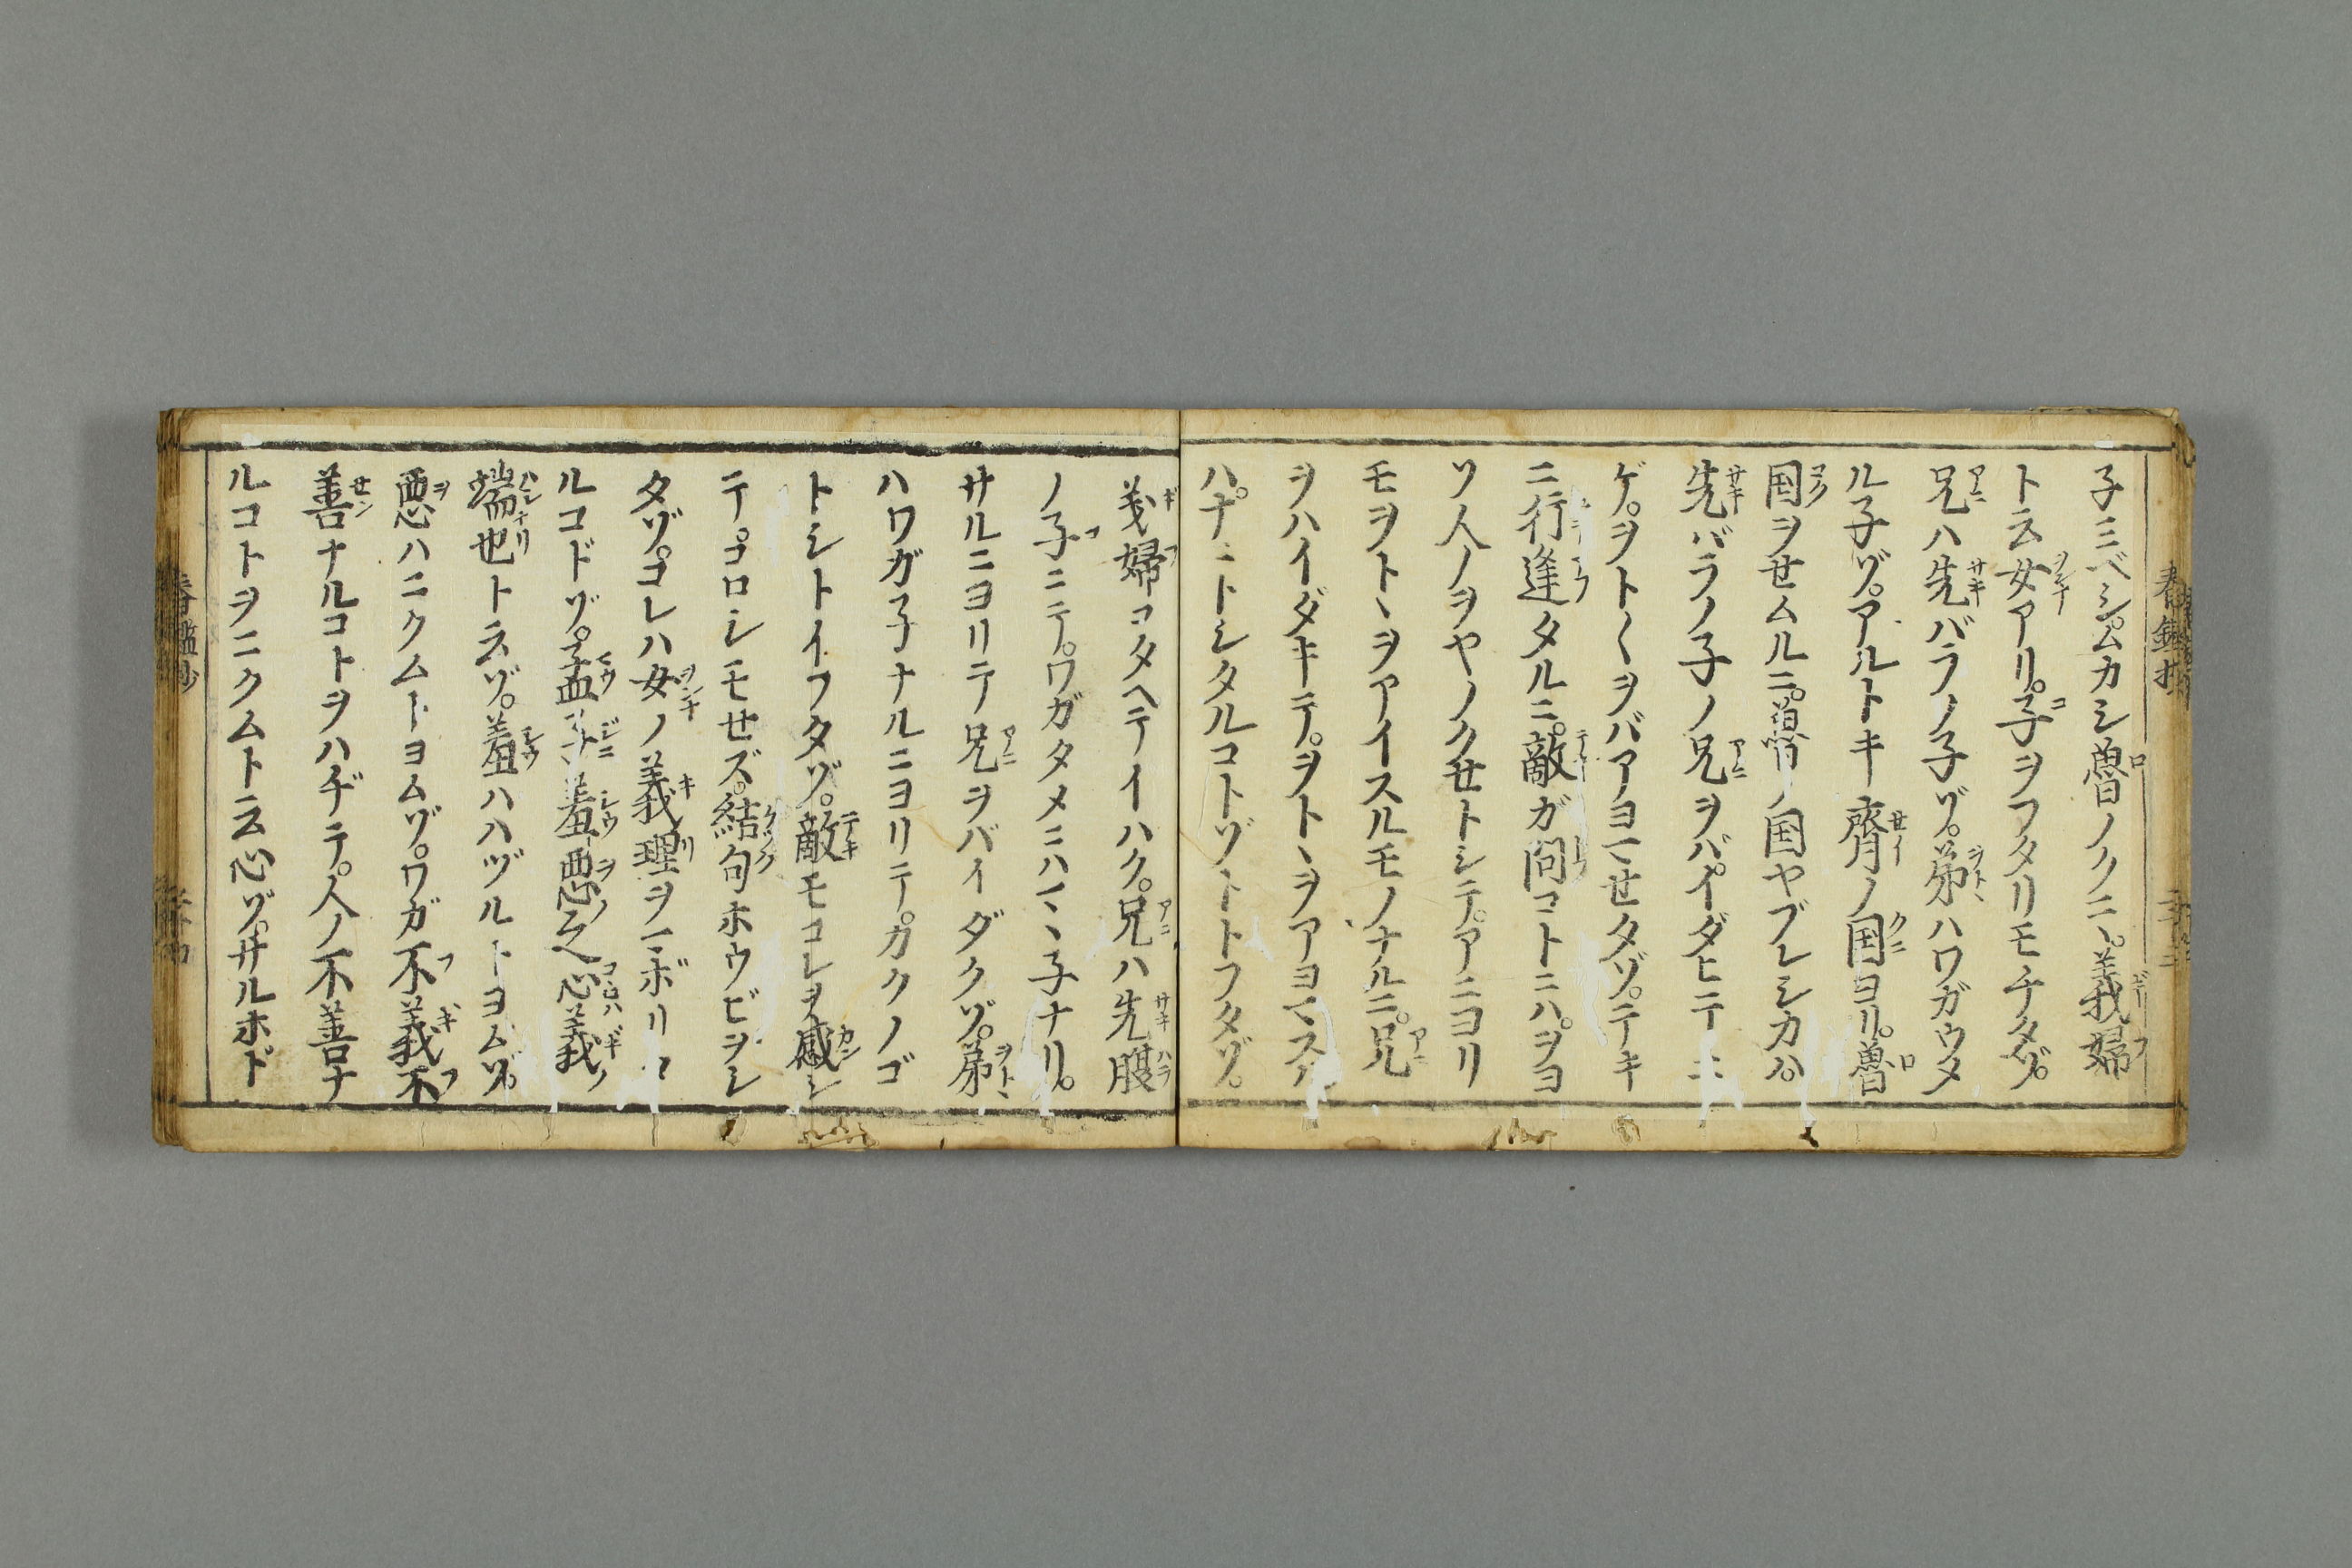 子ミベシ。ムカシ魯ノクニヽ。義婦
ト云女アリ。子ヲフタリモチタゾ。
兄ハ先バラノ子ゾ。弟ハワガウメ
ル子ゾ。アルトキ齊ノ国ヨリ。魯
国ヲセムルニ。魯ノ国ヤブレシカハ。
先バラノ子ノ兄ヲバ。イダヒテニ
ゲ。ヲトヽヲバアヨマセタゾ。テキ
ニ行逢タルニ。敵ガ問コトニハ。ヲヨ
ソ人ノヲヤノクセトシテ。アニヨリ
モヲトヽヲアイスルモノナルニ。兄
ヲハイダキテ。ヲトヽヲアヨマスル
ハ。ナニトシタルコトゾトトフタゾ。
義婦コタヘテイハク。兄ハ先腹
ノ子ニテ。ワガタメニハマヽ子ナリ。
サルニヨリテ兄ヲバイダクゾ。弟
ハワガ子ナルニヨリテ。カクノゴ
トシトイフタゾ。敵モコレヲ感シ
テ。コロシモセズ。結句ホウビヲシ
タゾ。コレハ女ノ義理ヲマボリタ
ルコドゾ。孟子ニ羞悪之心義ノ
端也ト云ゾ。羞ハハヅルトヨムゾ。
悪ハニクムトヨムゾ。ワガ不義不
善ナルコトヲハヂテ。人ノ不善ナ
ルコトヲニクムト云心ゾ。サルホド